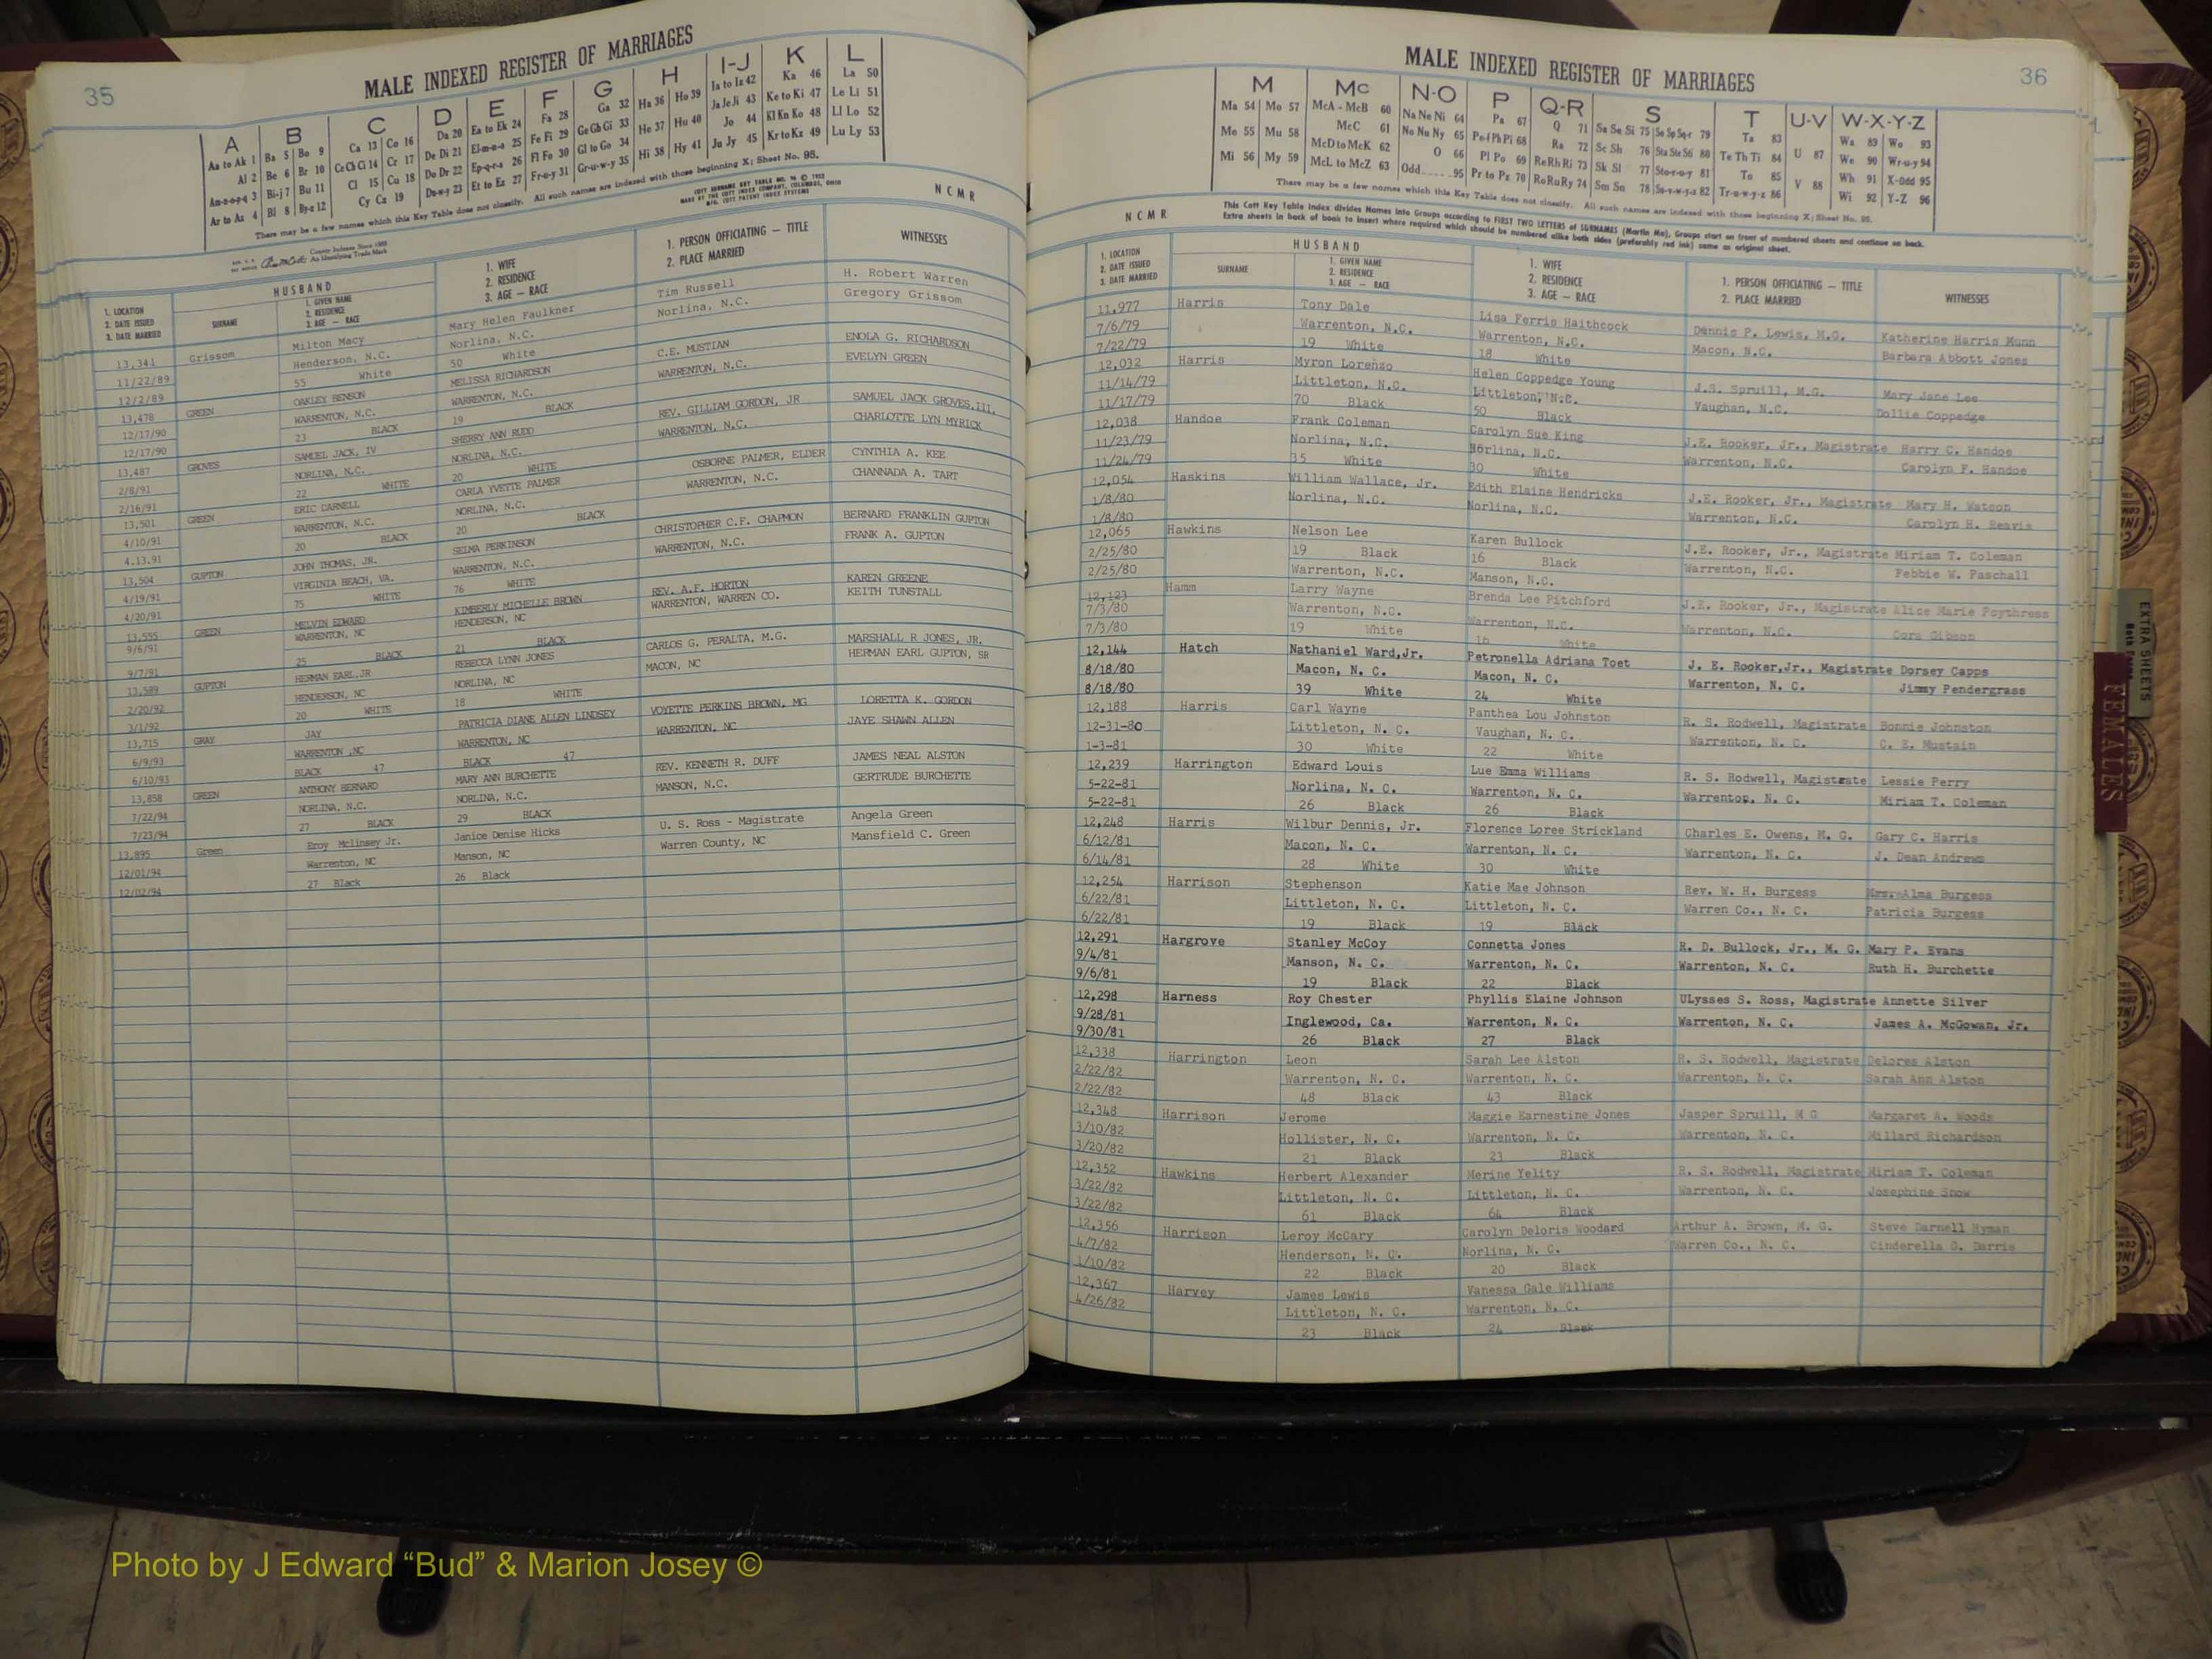 35
MALE INDEXED REGISTER OF MARRIAGES
A B C D E F G H I-J K L
Aa to Ak 1 Ba 5 Bo 9 Ca 13 Co 16 Da 20 Ea to Ek 24 Fa 28 Ga 32 Ha 36 Ho 39 Ia to Iz 42 Ka 46 La 50
Al 2 Be 6 Br 10 Ce Ch Ci 14 Cr 17 De Di 21 El-m-n-o 25 Fe Fi 29 Ge Gh Gi 33 He 37 Hu 40 Ja Je Ji 43 Ke to Ki 47 Le Li 51
Am-n-o-p-q 3 Bi-j 7 Bu 11 Cl 15 Cu 18 Do Dr 22 Ep-q-r-s 26 Fl Fo 30 Gl to Go 34 Hi 38 Hy 41 Jo 44 Kl Kn Ko 48 Ll Lo 52
Ar to Az 4 Bl 8 By-z 12 Cy Cz 19 Du-w-y 23 Et to Ez 27 Fr-u-y 31 Gr-u-w-y 35 Ju Jy 45 Kr to Kz 49 Lu Ly 53
There may be a few names which this Key Table does not classify. All such names are indexed with those beginning X; Sheet No. 95.
NCMR
1. LOCATION
2. DATE ISSUED
3. DATE MARRIED
HUSBAND
SURNAME
1. GIVEN NAME
2. RESIDENCE
3. AGE — RACE
1. WIFE
2. RESIDENCE
3. AGE — RACE
1. PERSON OFFICIATING — TITLE
2. PLACE MARRIED
WITNESSES
13,341 Grissom Milton Macy Mary Helen Faulkner Tim Russell H. Robert Warren
11/22/89 Henderson, N.C. Norlina, N.C. Norlina, N.C. Gregory Grissom
12/2/89 55 White 50 White
13,478 GREEN OAKLEY BENSON MELISSA RICHARDSON C.E. MUSTIAN ENOLA G. RICHARDSON
12/17/90 WARRENTON, N.C. WARRENTON, N.C. WARRENTON, N.C. EVELYN GREEN
12/17/90 23 BLACK 19 BLACK
13,487 GROVES SAMUEL JACK, IV SHERRY ANN RUDD REV. GILLIAM GORDON, JR SAMUEL JACK GROVES,III,
2/8/91 NORLINA, N.C. NORLINA, N.C. WARRENTON, N.C. CHARLOTTE LYN MYRICK
2/16/91 22 WHITE 20 WHITE
13,501 GREEN ERIC CARNELL CARLA YVETTE PALMER OSBORNE PALMER, ELDER CYNTHIA A. KEE
4/10/91 WARRENTON, N.C. NORLINA, N.C. WARRENTON, N.C. CHANNADA A. TART
4.13.91 20 BLACK 20 BLACK
13,504 GUPTON JOHN THOMAS, JR. SELMA PERKINSON CHRISTOPHER C.F. CHAPMON BERNARD FRANKLIN GUPTON
4/19/91 VIRGINIA BEACH, VA. WARRENTON, N.C. WARRENTON, N.C. FRANK A. GUPTON
4/20/91 75 WHITE 76 WHITE
13,555 GREEN MELVIN EDWARD KIMBERLY MICHELLE BROWN REV. A.F. HORTON KAREN GREENE
9/6/91 WARRENTON, NC HENDERSON, NC WARRENTON, WARREN CO. KEITH TUNSTALL
9/7/91 25 BLACK 21 BLACK
13,589 GUPTON HERMAN EARL,JR REBECCA LYNN JONES CARLOS G. PERALTA, M.G. MARSHALL R JONES, JR.
2/20/92 HENDERSON, NC NORLINA, NC MACON, NC HERMAN EARL GUPTON, SR
3/1/92 20 WHITE 18 WHITE
13,715 GRAY JAY PATRICIA DIANE ALLEN LINDSEY VOYETTE PERKINS BROWN, MG LORETTA K. GORDON
6/9/93 WARRENTON ,NC WARRENTON, NC WARRENTON, NC JAYE SHAWN ALLEN
6/10/93 BLACK 47 BLACK 47
13,858 GREEN ANTHONY BERNARD MARY ANN BURCHETTE REV. KENNETH R. DUFF JAMES NEAL ALSTON
7/22/94 NORLINA, N.C. NORLINA, N.C. MANSON, N.C. GERTRUDE BURCHETTE
7/23/94 27 BLACK 29 BLACK
13,895 Green Eroy Mclinsey Jr. Janice Denise Hicks U. S. Ross - Magistrate Angela Green
12/01/94 Warrenton, NC Manson, NC Warren County, NC Mansfield C. Green
12/02/94 27 Black 26 Black
36
MALE INDEXED REGISTER OF MARRIAGES
M Mc N-O P Q-R S T U-V W-X-Y-Z
Ma 54 Mo 57 McA - McB 60 Na Ne Ni 64 Pa 67 Q 71 Sa Se Si 75 So Sp Sq-r 79 Ta 83 Wa 89 Wo 93
Me 55 Mu 58 McC 61 No Nu Ny 65 Pe-f Ph Pi 68 Ra 72 Sc Sh 76 Sta Ste Sti 80 Te Th Ti 84 U 87 We 90 Wr-u-y 94
Mi 56 My 59 McD to McK 62 O 66 Pl Po 69 Re Rh Ri 73 Sk Sl 77 Sto-r-u-y 81 To 85 Wh 91 X-Odd 95
McL to McZ 63 Odd 95 Pr to Pz 70 Ro Ru Ry 74 Sm Sn 78 Su-v-w-y-z 82 Tr-u-w-y-z 86 V 88 Wi 92 Y-Z 96
There may be a few names which this Key Table does not classify. All such names are indexed with those beginning X; Sheet No. 95.
NCMR
This Cott Key Table Index divides Names into Groups according to FIRST TWO LETTERS of SURNAMES (Martin Ma), Groups start on front of numbered sheets and continue on back.
Extra sheets in back of book to insert where required which should be numbered alike both sides (preferably red ink) same as original sheet.
1. LOCATION
2. DATE ISSUED
3. DATE MARRIED
HUSBAND
SURNAME
1. GIVEN NAME
2. RESIDENCE
3. AGE — RACE
1. WIFE
2. RESIDENCE
3. AGE — RACE
1. PERSON OFFICIATING — TITLE
2. PLACE MARRIED
WITNESSES
11,977 Harris Tony Dale Lisa Ferris Haithcock Dennis P. Lewis, M.G. Katherine Harris Munn
7/6/79 Warrenton, N.C. Warrenton, N.C. Macon, N.C. Barbara Abbott Jones
7/22/79 19 White 18 White
12,032 Harris Myron Lorenzo Helen Coppedge Young J.S. Spruill, M.G. Mary Jane Lee
11/14/79 Littleton, N.C. Littleton, N.C. Vaughan, N.C. Dollie Coppedge
11/17/79 70 Black 50 Black
12,038 Handoe Frank Coleman Carolyn Sue King J.E. Rooker, Jr., Magistrate Harry C. Handoe
11/23/79 Norlina, N.C. Norlina, N.C. Warrenton, N.C. Carolyn F. Handoe
11/24/79 35 White 30 White
12,054 Haskins William Wallace, Jr. Edith Elaine Hendricks J.E. Rooker, Jr., Magistrate Mary H. Watson
1/8/80 Norlina, N.C. Norlina, N.C. Warrenton, N.C. Carolyn H. Reavis
1/8/80
12,065 Hawkins Nelson Lee Karen Bullock J.E. Rooker, Jr., Magistrate Miriam T. Coleman
2/25/80 19 Black 16 Black Warrenton, N.C. Febbie W. Paschall
2/25/80 Warrenton, N.C. Manson, N.C.
12,123 Hamm Larry Wayne Brenda Lee Pitchford J.E. Rooker, Jr., Magistrate Alice Marie Poythress
7/3/80 Warrenton, N.C. Warrenton, N.C. Warrenton, N.C. Cora Gibson
7/3/80 19 White 16 White
12,144 Hatch Nathaniel Ward,Jr. Petronella Adriana Toet J. E. Rooker,Jr., Magistrate Dorsey Capps
8/18/80 Macon, N. C. Macon, N. C. Warrenton, N. C. Jimmy Pendergrass
8/18/80 39 White 24 White
12,188 Harris Carl Wayne Panthea Lou Johnston R. S. Rodwell, Magistrate Bonnie Johnston
12-31-80 Littleton, N. C. Vaughan, N. C. Warrenton, N. C. C. E. Mustain
1-3-81 30 White 22 White
12,239 Harrington Edward Louis Lue Emma Williams R. S. Rodwell, Magistrate Lessie Perry
5-22-81 Norlina, N. C. Warrenton, N. C. Warrenton, N. C. Miriam T. Coleman
5-22-81 26 Black 26 Black
12,248 Harris Wilbur Dennis, Jr. Florence Loree Strickland Charles E. Owens, M. G. Gary C. Harris
6/12/81 Macon, N. C. Warrenton, N. C. Warrenton, N. C. J. Dean Andrews
6/14/81 28 White 30 White
12,254 Harrison Stephenson Katie Mae Johnson Rev. W. H. Burgess Mrs. Alma Burgess
6/22/81 Littleton, N. C. Littleton, N. C. Warren Co., N. C. Patricia Burgess
6/22/81 19 Black 19 Black
12,291 Hargrove Stanley McCoy Connetta Jones R. D. Bullock, Jr., M. G. Mary P. Evans
9/4/81 Manson, N. C. Warrenton, N. C. Warrenton, N. C. Ruth H. Burchette
9/6/81 19 Black 22 Black
12,298 Harness Roy Chester Phyllis Elaine Johnson ULysses S. Ross, Magistrate Annette Silver
9/28/81 Inglewood, Ca. Warrenton, N. C. Warrenton, N. C. James A. McGowan, Jr.
9/30/81 26 Black 27 Black
12,338 Harrington Leon Sarah Lee Alston R. S. Rodwell, Magistrate Delores Alston
2/22/82 Warrenton, N. C. Warrenton, N. C. Warrenton, N. C. Sarah Ann Alston
2/22/82 48 Black 43 Black
12,348 Harrison Jerome Maggie Earnestine Jones Jasper Spruill, M G Margaret A. Woods
3/10/82 Hollister, N. C. Warrenton, N. C. Warrenton, N. C. Millard Richardson
3/20/82 21 Black 23 Black
12,352 Hawkins Herbert Alexander Merine Yelity R. S. Rodwell, Magistrate Miriam T. Coleman
3/22/82 Littleton, N. C. Littleton, N. C. Warrenton, N. C. Josephine Snow
3/22/82 61 Black 64 Black
12,356 Harrison Leroy McCary Carolyn Deloris Woodard Arthur A. Brown, M. G. Steve Darnell Hyman
4/7/82 Henderson, N. C. Norlina, N. C. Warren Co., N. C. Cinderella G. Darris
1/10/82 22 Black 20 Black
12,367 Harvey James Lewis Vanessa Gale Williams
4/26/82 Littleton, N. C. Warrenton, N. C.
23 Black 24 Black
EXTRA SHEETS
FEMALES
Photo by J Edward “Bud” & Marion Josey ©